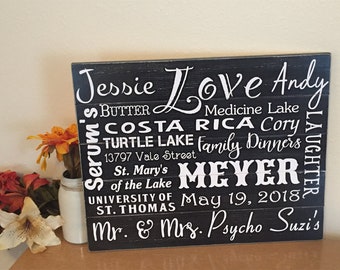 Jessie Love Andy
BUTTER Medicine Lake
COSTA RICA Cory
TURTLE LAKE Family Dinners
13797 Vale Street
St. Mary's
of the Lake
MEYER
UNIVERSITY OF
ST. THOMAS
May 19, 2018
Mr. & Mrs. Psycho Suzi's
Serum's
LAUGHTER